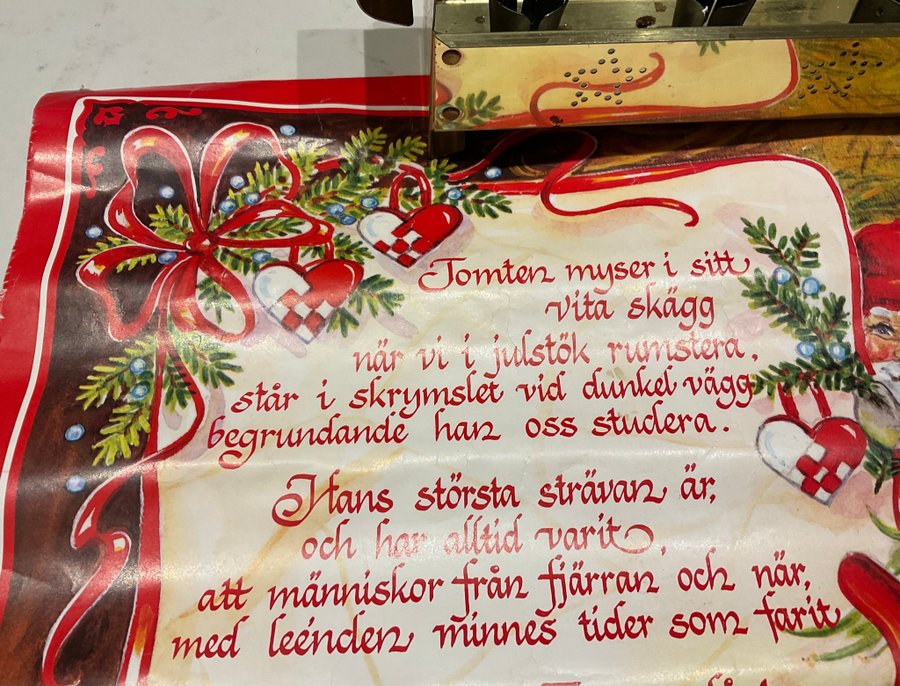 Tomten myser i sitt
vita skägg
när vi i julstök rumstera,
står i skrymslet vid dunkel vägg
begrundande han oss studera.
Hans största strävan är,
och har alltid varit,
att människor från fjärran och när,
med leenden minnes tider som farit